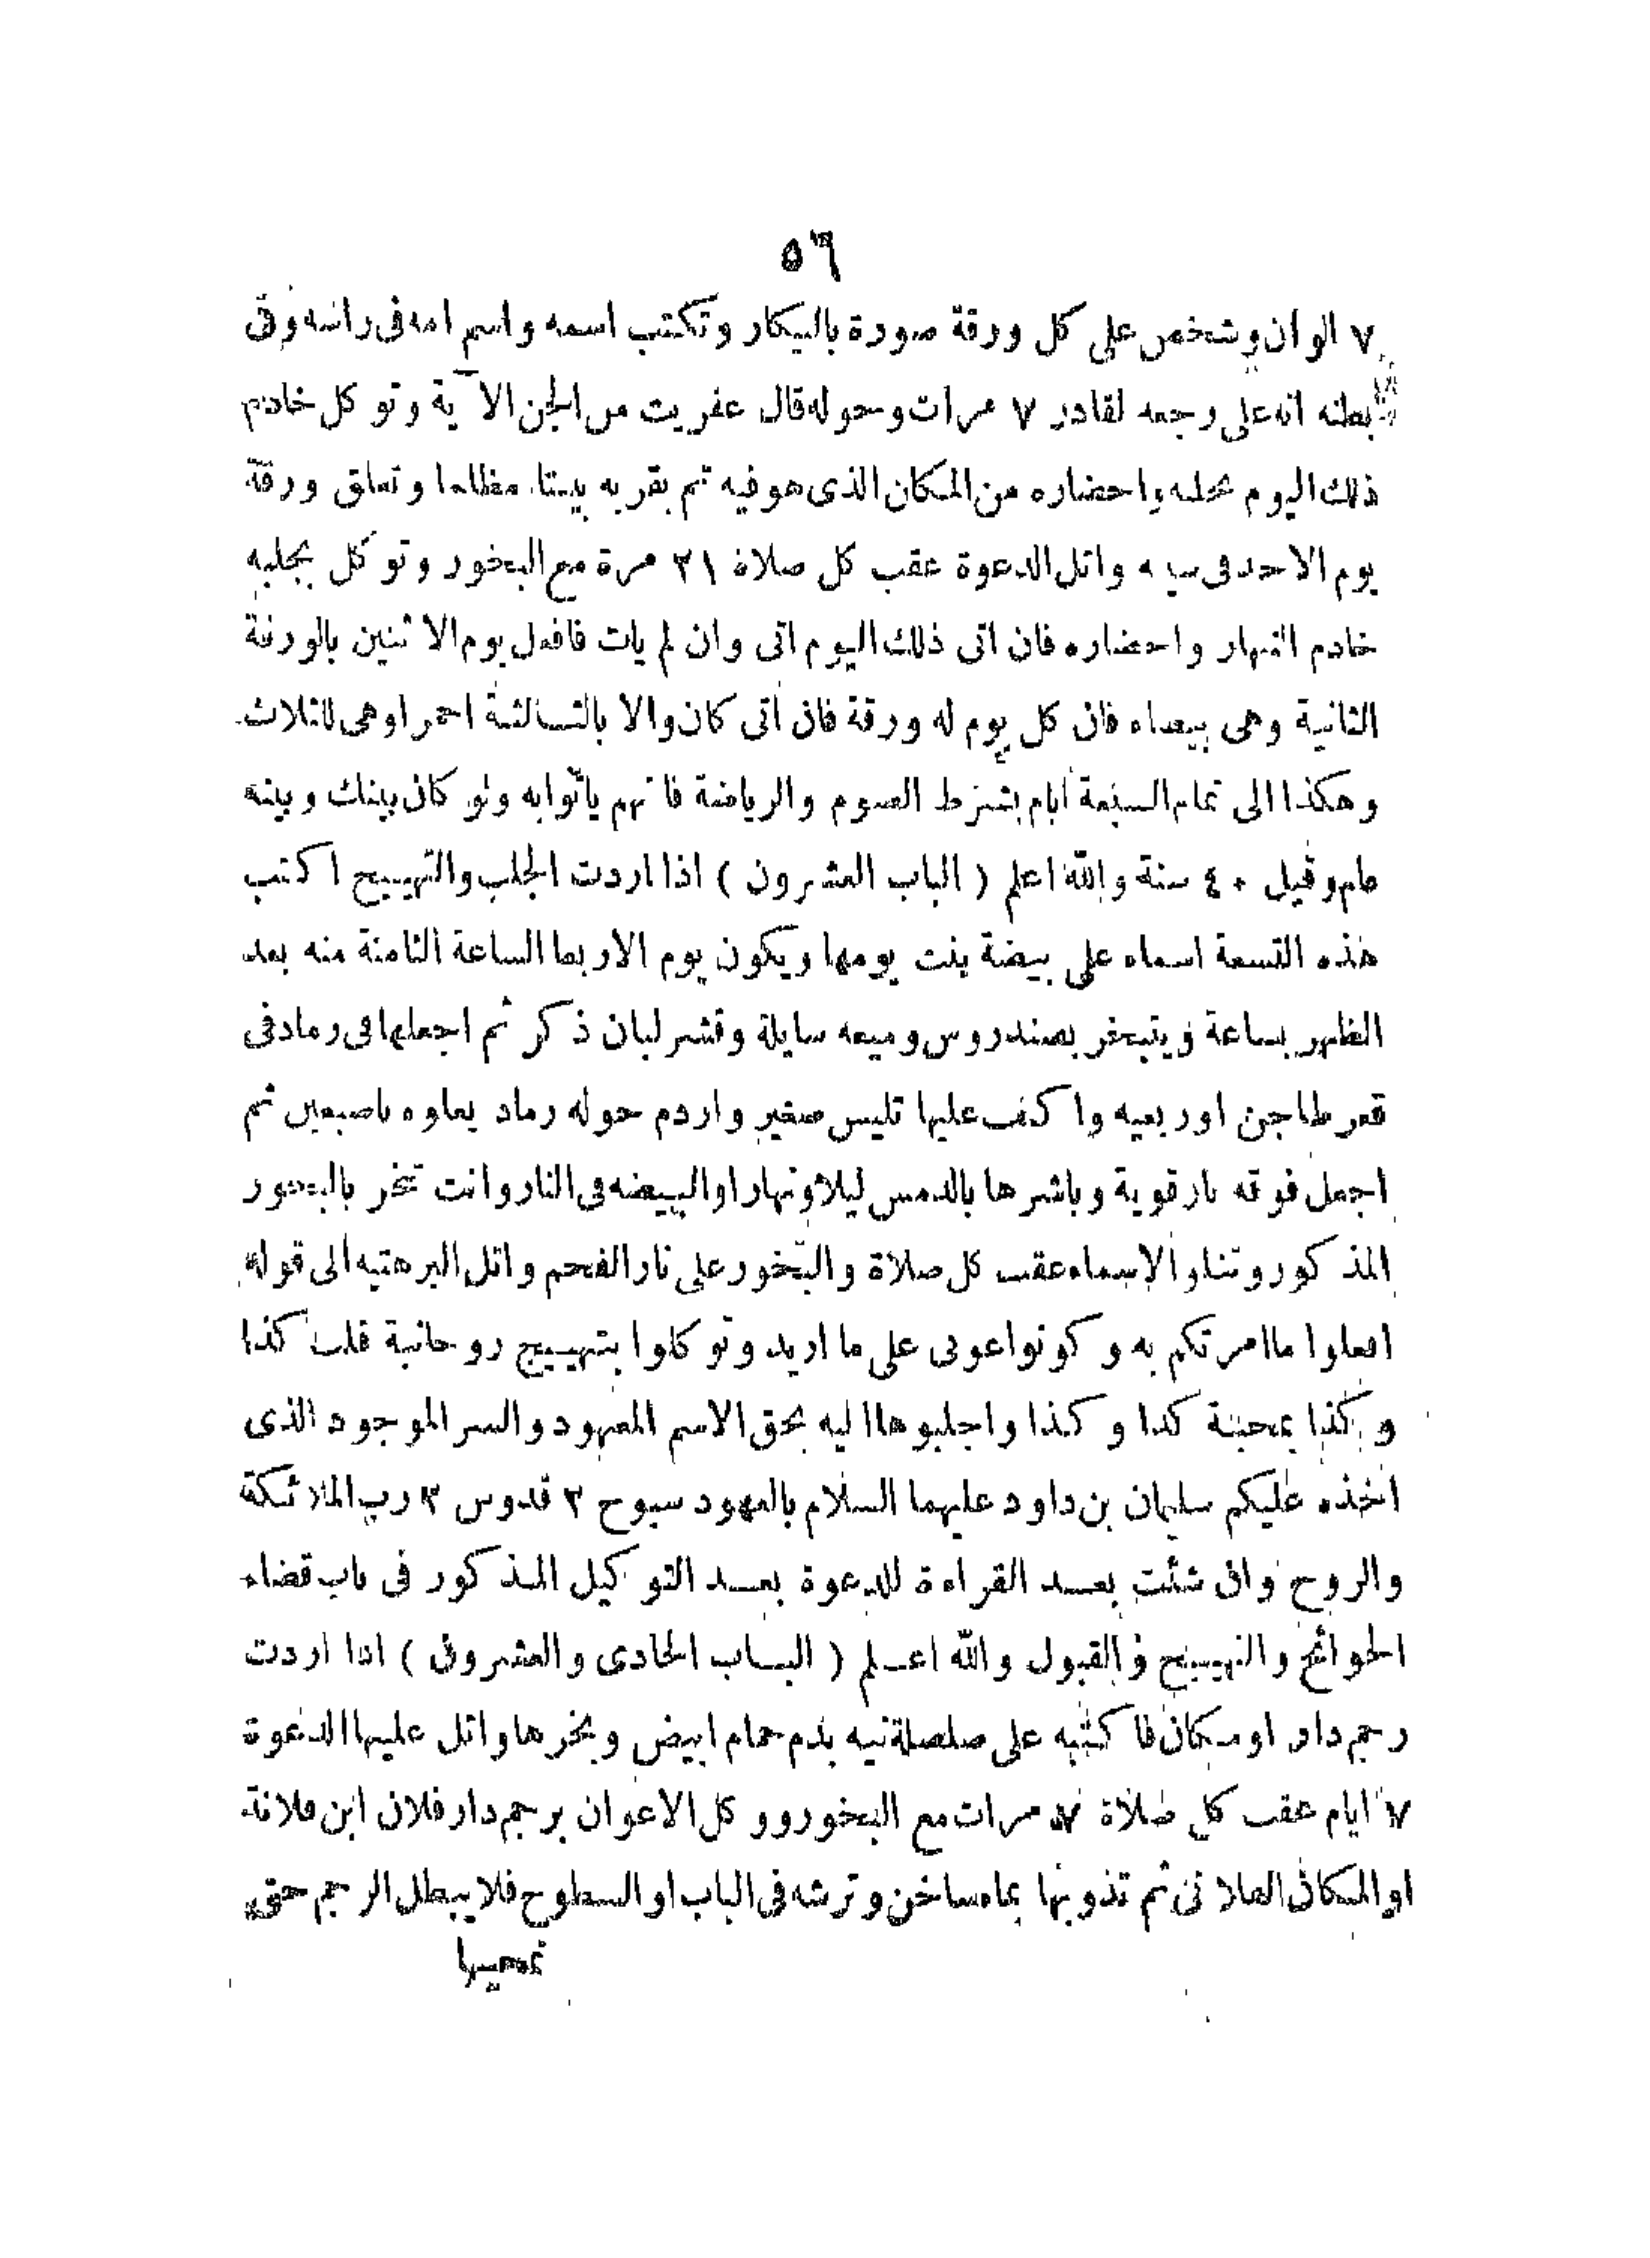 ٥٦
٧ الوان وشخص على كل ورقة صورة بالبيكار وتكتب اسمه واسم امه فى راسه وفى
بطنه انه على رجعه لقادر ٧ مرات وحوله قال عفريت من الجن الآية وتوكل خادم
ذلك اليوم بجلبه واحضاره من المكان الذى هو فيه ثم بقربه بيتا مظلما وتعلق ورقة
يوم الاحد فى واتل الدعوة عقب كل صلاة ٢١ مرة مع البخور وتوكل بجلبه
خادم النهار واحضاره فان اتى ذلك اليوم اتى وان لم يات فافعل يوم الاثنين بالورقة
الثانية وهى بيضاء فان كل يوم له ورقة فان اتى كان والا بالثالثة احمر اوهى للثلاث
وهكذا الى تمام السبعة أيام بشرط الصوم والرياضة فانهم يأتوا به ولو كان بينك وبينه
عام وقيل ٤٠ سنة والله اعلم ( الباب العشرون ) اذا اردت الجلب والتهييج اكتب
هذه التسعة اسماء على بيضة بنت يومها ويكون يوم الاربعا الساعة الثامنة منه بعد
الظهر بساعة ويتبخر بصندروس وميعه سايلة وقشر لبان ذكر ثم اجعلها فى رماد فى
قعر طاجن او ربعيه واكف عليها تليس صغير واردم حوله رماد يعلوه باصبعين ثم
اجعل فوقه نار قوية وباشرها بالدمس ليلا ونهارا والبيضه فى النار وانت تبخر بالبخور
المذكور وتتلو الاسماء عقب كل صلاة والبخور على نار الفحم واتل البرهتيه الى قوله
افعلوا ما امرتكم به وكونوا عونى على ما اريد وتوكلوا بتهييج روحانية قلب كذا
وكذا بمحبة كذا وكذا واجلبوها اليه بحق الاسم المعهود والسر الموجود الذى
اخذه عليكم سليمان بن داود عليهما السلام بالعهود سبوح ٣ قدوس ٣ رب الملائكة
والروح وان شئت بعد القراءة للدعوة بعد التوكيل المذكور فى باب قضاء
الحوائج والتهييج والقبول والله اعلم ( الباب الحادى والعشرون ) اذا اردت
رجم دار او مكان فاكتبه على صلصلة نيه بدم حمام ابيض وبخرها واتل عليها الدعوة
٧ ايام عقب كل صلاة ٧ مرات مع البخور ووكل الاعوان برجم دار فلان ابن فلانة
او المكان الفلانى ثم تذوبها بماء ساخن وترشه فى الباب او السطوح فلا يبطل الرجم حتى